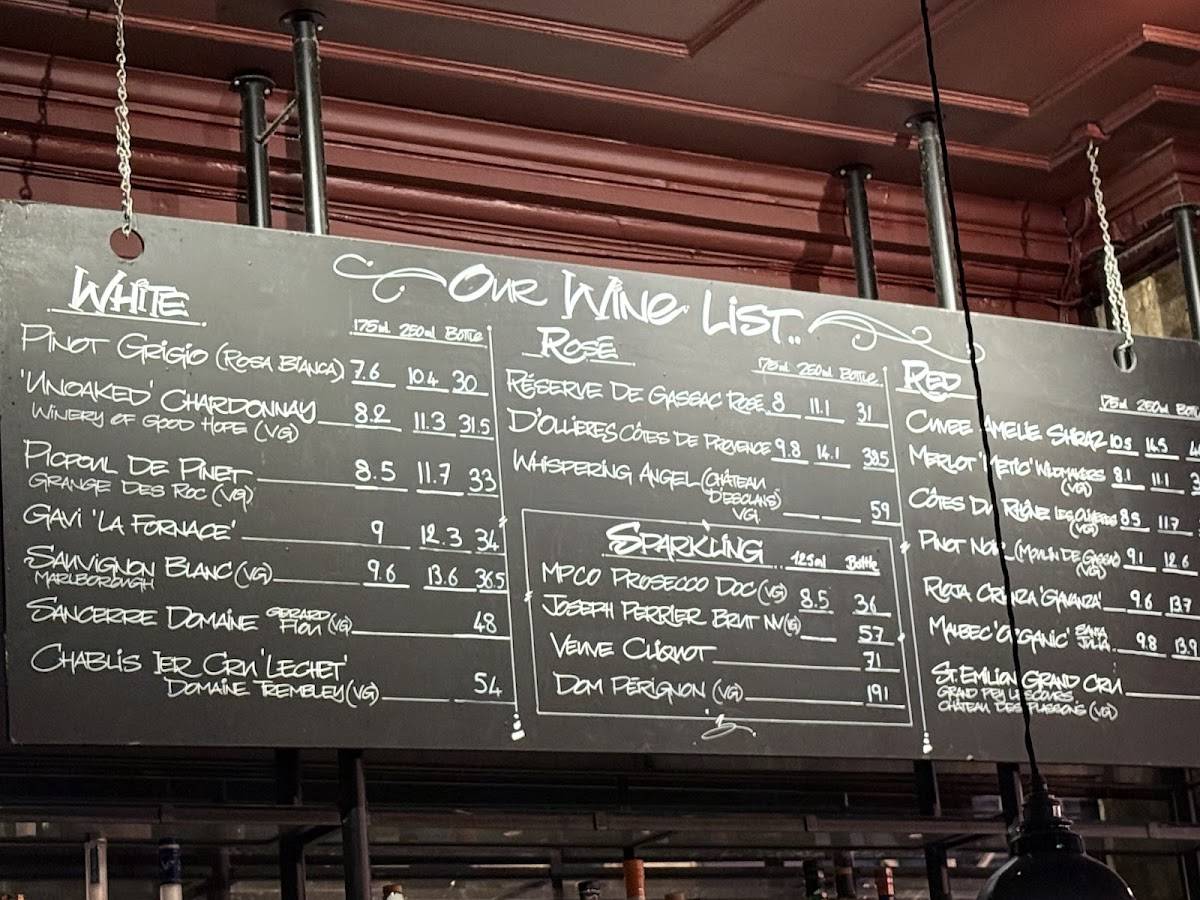 Our Wine List..
White
175ml 250ml Bottle
Pinot Grigio (Rosa Bianca) 7.6 10.4 30
'Unoaked' Chardonnay 8.2 11.3 31.5
Winery of Good Hope (VG)
Picpoul De Pinet 8.5 11.7 33
Grange Des Roc (VG)
Gavi 'La Fornace' 9 12.3 34
Sauvignon Blanc (VG) 9.6 13.6 36.5
Marlborough
Sancerre Domaine Gerard Fiou (VG) 48
Chablis 1er Cru 'Lechet'
Domaine Trembley (VG) 54
Rosé
175ml 250ml Bottle
Réserve De Gassac Rosé 8 11.1 31
D'Ollieres Côtes De Provence 9.8 14.1 38.5
Whispering Angel (Château
D'esclans)
VG 59
Sparkling 125ml Bottle
MPCO Prosecco DOC (VG) 8.5 36
Joseph Perrier Brut NV (VG) 57
Veuve Cliquot 71
Dom Pérignon (VG) 191
Red
175ml 250ml
Cuvee Amelie Shiraz 10.5 14.5
Merlot Wildmakers 8.1 11.1
(VG)
Côtes Du Rhône Les Olivieres 8.5 11.7
(VG)
Pinot Noir (Moulin De Gassac) 9.1 12.6
(VG)
Rioja Crianza 'Gavanza' 9.6 13.7
Malbec 'Organic' Santa Julia 9.8 13.9
St. Emilion Grand Cru
Grand Pey Lescours
Château Des Plassons (VG)